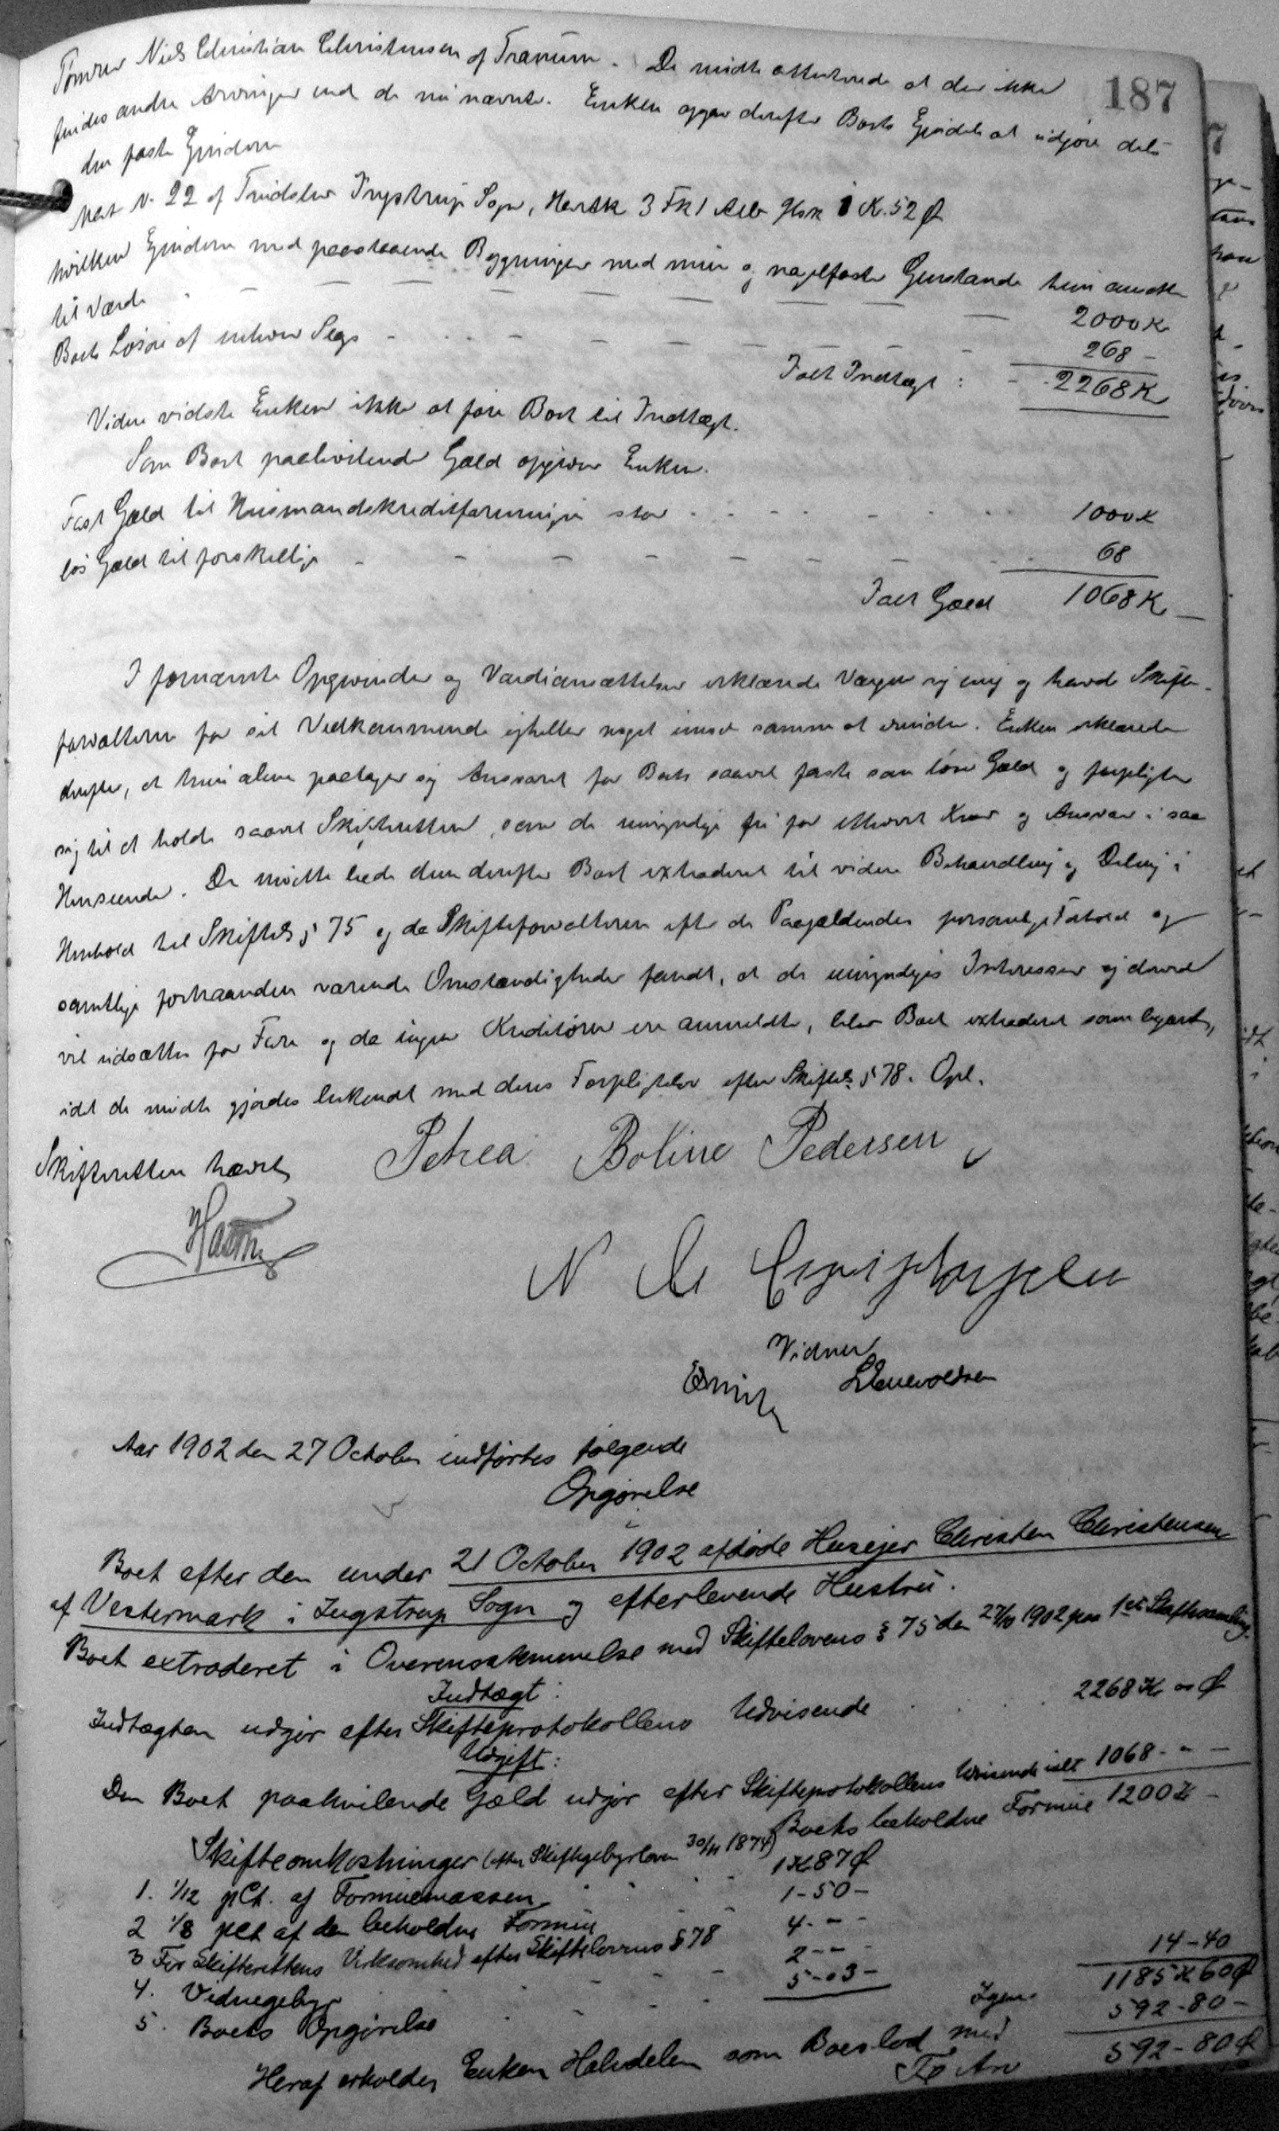 187
Tømrer Niels Christian Christensen af Tranum. De mødte attesterede at der ikke
findes andre Arvinger end de nu nævnte. Enken opgav derefter Boets Ejendele at udgjøre dels
den faste Ejendom
Matr N. 22 af Ingstrup Sogn, Hartk 3 Fk 1 Alb Glsk 1 K. 52 Ø
hvilken Ejendom med paastaaende Bygninger med mur og nagelfaste Genstande hun ansatte
til Værdi 2000 K
Boets Løsøre af enhver Slags 268 -
Ialt Indtægt : 2268 K
Videre vidste Enken ikke at føre Boet til Indtægt.
Som Boet paahvilende Gæld opgiver Enken.
Fast Gæld til Husmandskreditforeningen stor 1000 K
løs Gæld til forskellige 68
Ialt Gæld 1068 K
I fornævnte Opgivender og Værdiansættelser erklærede Værgen sig enig og havde Skifte-
forvalteren for sit Vedkommende ejheller noget imod samme at erindre. Enken erklærede
derefter, at hun alene paatager sig Ansvaret for Boets saavel faste som løse Gæld og forpligter
sig til at holde saavel Skifteretten, som de umyndige fri for ethvert Krav og Ansvar i saa
Henseende. De mødte bede dem derefter Boet extraderet til videre Behandling og Deling i
Henhold til Skiftels § 75 og da Skifteforvalteren efter de Paagældendes personlige Forhold og
samtlige forhaanden værende Omstændigheder fandt, at de umyndiges Interesser ej derved
vil udsættes for Fare og da ingen Kreditorer ere anmeldte, blev Boet extraderet som begært,
idet de mødte gjordes bekendt med deres Forpligtelser efter Skiftels § 78. Opl.
Skifteretten hævet
Petrea Boline Pedersen
N C
Vidner
Aar 1902 den 27 October indførtes følgende
Opgjørelse
i
Boet efter den under 21 October 1902 afdøde Husejer Christen Christensen
af Vestermark i Ingstrup Sogn og efterlevende Hustru.
Boet extraderet i Overensstemmelse med Skiftelovens § 75 den 27/10 1902 paa 1ste Skiftesamling.
Indtægt:
Indtægten udgjør efter Skifteprotokollens Udvisende 2268 K oo Ø
Udgift:
Den Boet paahvilende Gæld udgjør efter Skifteprotokollens Udvisende ialt 1068 - " -
Boets beholdne Formue 1200 K -
Skifteomkostninger (efter Skiftegebyrloven 30/11 1874)
1. 1/12 pCt. af Formuemassen 1 K 87 Ø
2 1/8 pCt af den beholdne Formue 1 - 50 -
3 For Skifterettens Virksomhed efter Skiftelovens § 78 4 - " -
4. Vidnegebyr 2 - " -
5. Boets Opgjørelse 5 - 03 - 14 - 40
Igen 1185 K 60 Ø
Heraf erholder Enken Halvdelen som Boeslod med 592 - 80 -
Til Arv 592 - 80 Ø